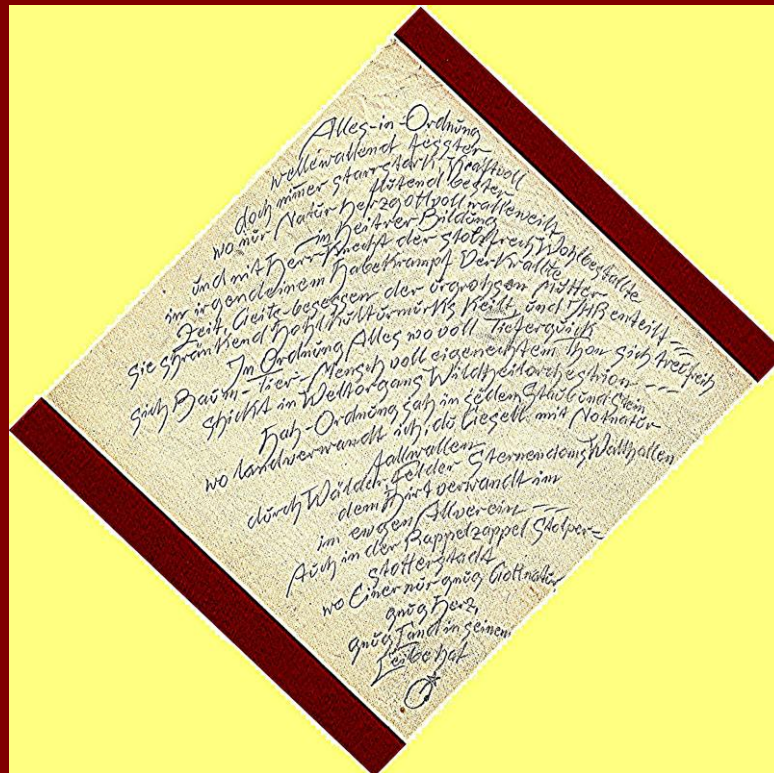 Alles-in-Ordnung
wellewallend fesster
doch immer starrstark Kraftvoll
flutend bester
wo nur Natur herzgottvoll walleweilt
in heitrer Bildung
und mit Herr-Knecht der stolzfrech Wohlbestallte
in irgendeinem Habekrampf Verkrallte
Zeit, Geits-besessen der urgrohsen Mutter enteilt ---
sie shränkend Hohl Kulturmurks Keilt, und
In Ordnung Alles wo voll Tieferquick
sich Baum-Tier-Mensch voll eigenechtem Thon sich treufreih
shickt in Weltorgang Wildheilorchestrion ---
Hah-Ordnung jah in sellem Staub und Stein
wo landverwandt ich, du Liesell mit Notnatur
fallwallen
durch Wälder Felder Sternendoms Wallhallen
dem Hürt verwandt im
im ewgen Allverein ---
Auch in der Rappelzappel Stolper=
stotterstadt
wo Einer nur gnug Gottnatur
gnug Herz,
gnug Land in seinem
Leibe hat